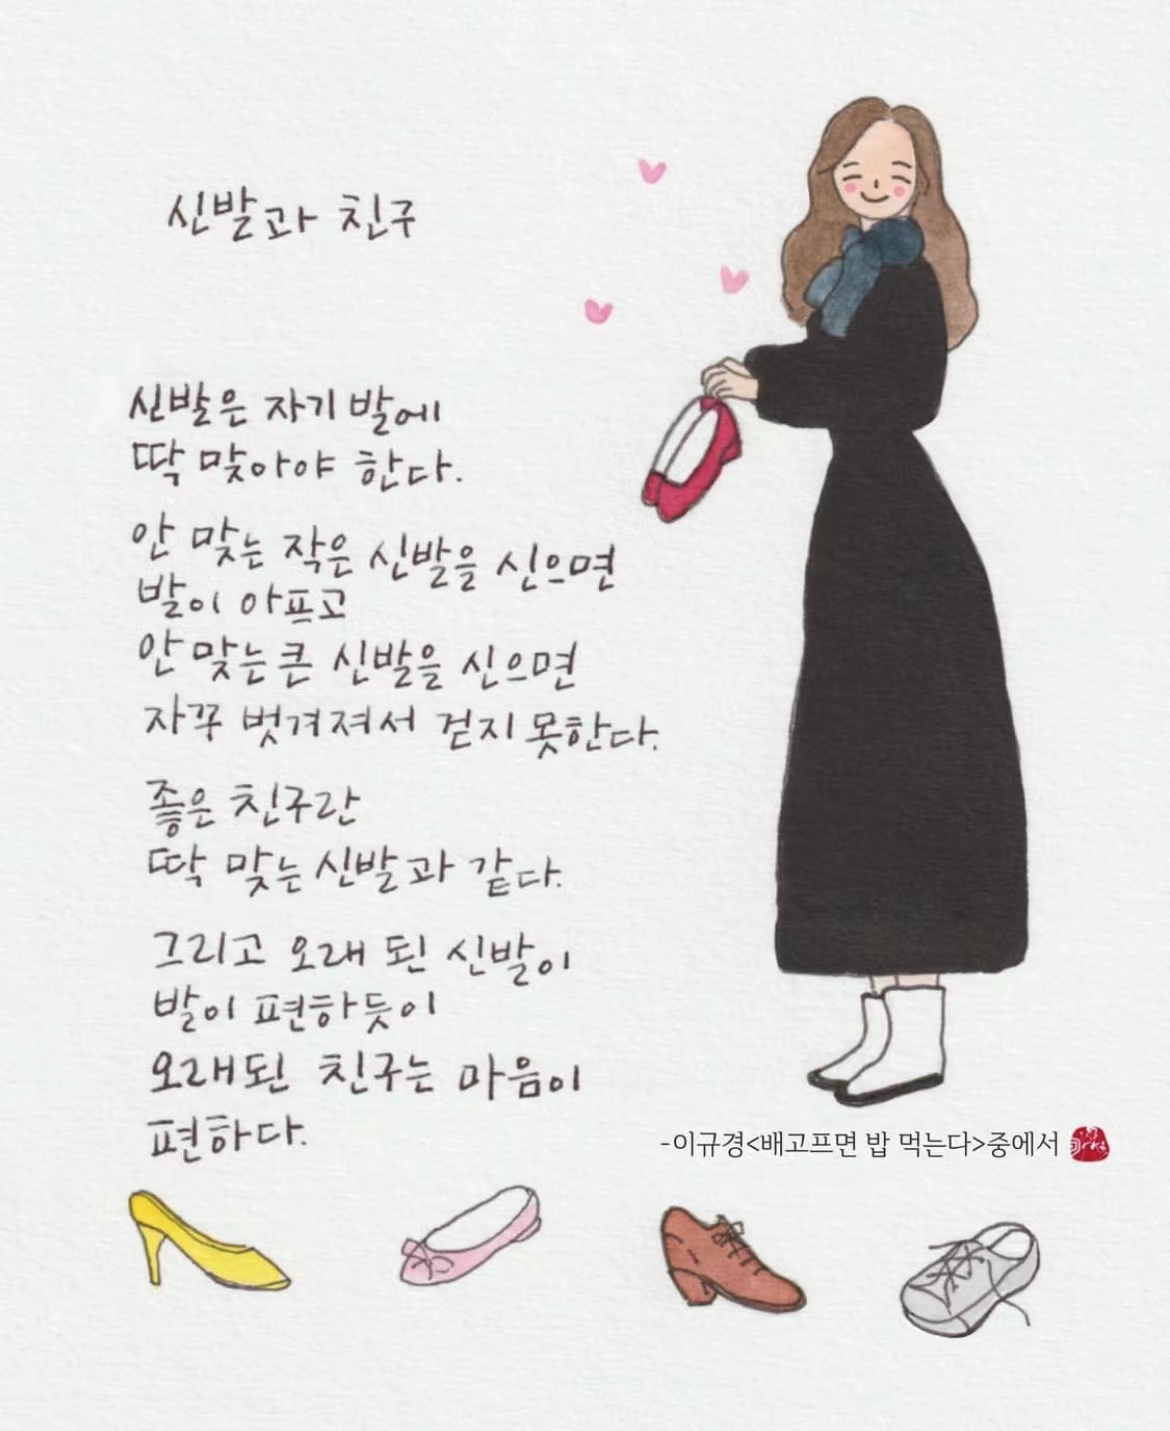 신발과 친구
신발은 자기 발에
딱 맞아야 한다.
안 맞는 작은 신발을 신으면
발이 아프고
안 맞는 큰 신발을 신으면
자꾸 벗겨져서 걷지 못한다.
좋은 친구란
딱 맞는 신발과 같다.
그리고 오래 된 신발이
발이 편하듯이
오래된 친구는 마음이
편하다.
-이규경<배고프면 밥 먹는다>중에서